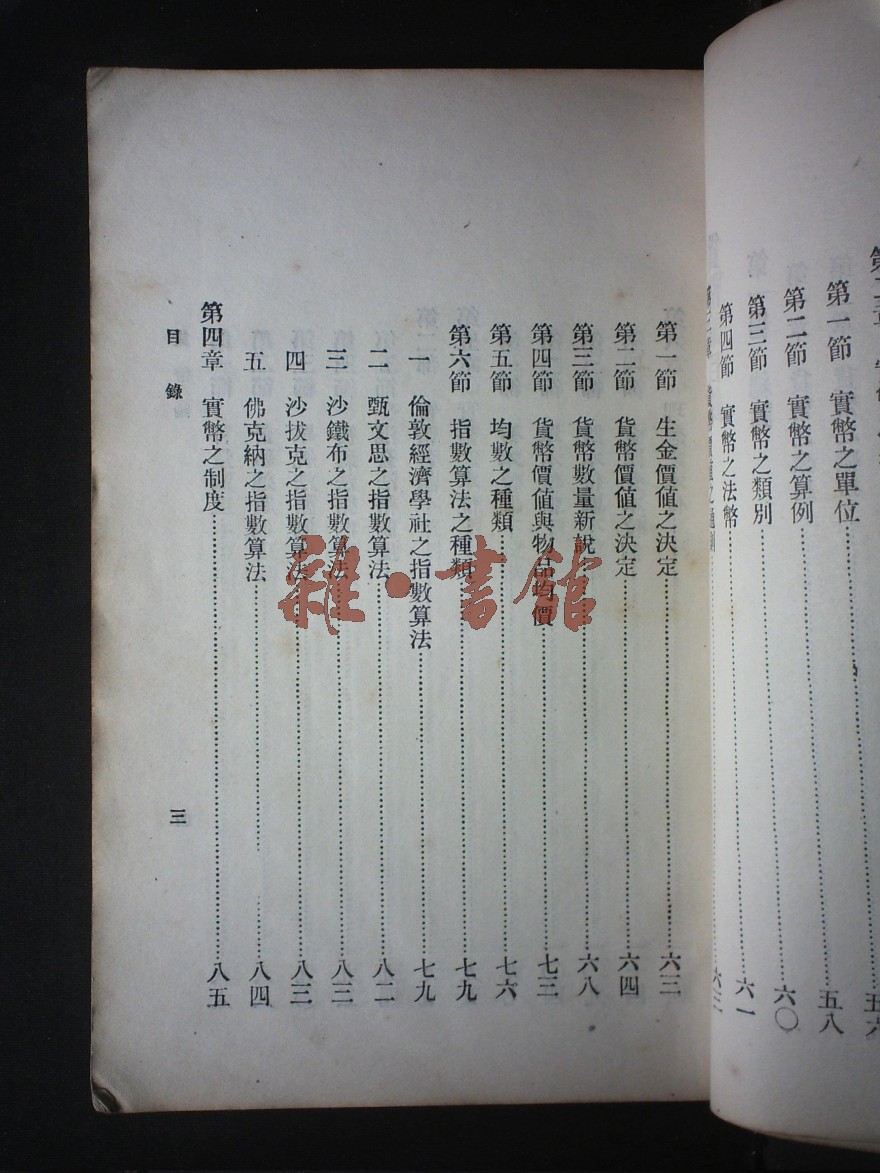 第一節 實幣之單位 五八
第二節 實幣之算例 六〇
第三節 實幣之類別
第四節 實幣之法幣 六一
第三章 貨幣價值之通則 六三
第一節 生金價值之決定 六三
第二節 貨幣價值之決定 六四
第三節 貨幣數量新說 六八
第四節 貨幣價值與物品均價 七三
第五節 均數之種類 七六
第六節 指數算法之種類 七九
一 倫敦經濟學社之指數算法 七九
二 甄文思之指數算法 八二
三 沙鐵布之指數算法 八三
四 沙拔克之指數算法 八三
五 佛克納之指數算法 八四
第四章 實幣之制度 八五
目錄 三
雜·書館